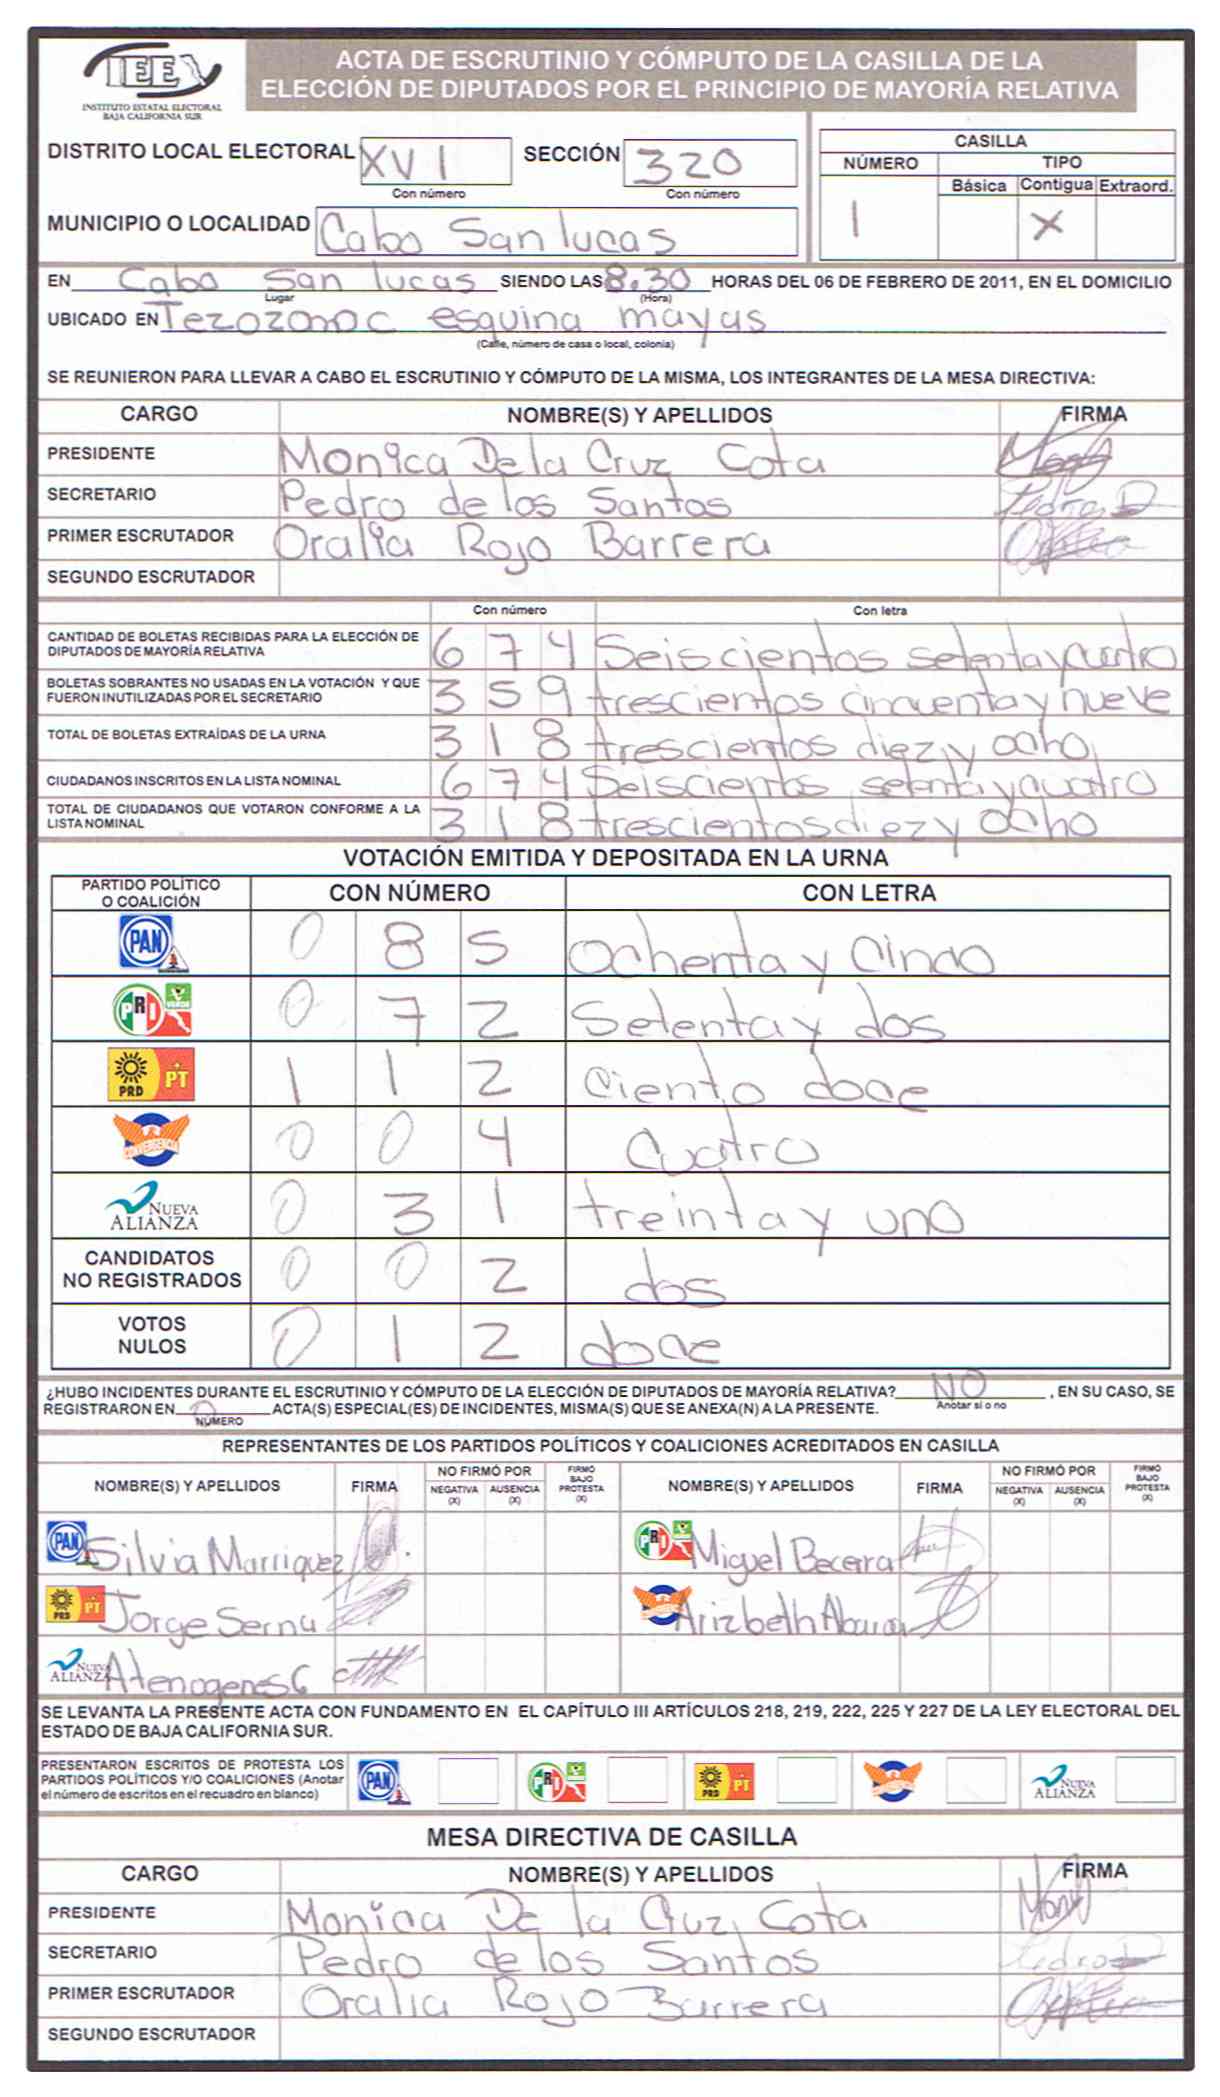 IEEX
INSTITUTO ESTATAL ELECTORAL
BAJA CALIFORNIA SUR
ACTA DE ESCRUTINIO Y CÓMPUTO DE LA CASILLA DE LA
ELECCIÓN DE DIPUTADOS POR EL PRINCIPIO DE MAYORÍA RELATIVA
DISTRITO LOCAL ELECTORAL XVI SECCIÓN 320
Con número Con número
MUNICIPIO O LOCALIDAD Cabo San lucas
CASILLA
NÚMERO TIPO
Básica Contigua Extraord.
1 X
EN Cabo San lucas SIENDO LAS 8:30 HORAS DEL 06 DE FEBRERO DE 2011, EN EL DOMICILIO
Lugar (Hora)
UBICADO EN Tezozomoc esquina mayas
(Calle, número de casa o local, colonia)
SE REUNIERON PARA LLEVAR A CABO EL ESCRUTINIO Y CÓMPUTO DE LA MISMA, LOS INTEGRANTES DE LA MESA DIRECTIVA:
CARGO NOMBRE(S) Y APELLIDOS FIRMA
PRESIDENTE Monica De la Cruz Cota
SECRETARIO Pedro de los Santos
PRIMER ESCRUTADOR Oralia Rojo Barrera
SEGUNDO ESCRUTADOR
Con número Con letra
CANTIDAD DE BOLETAS RECIBIDAS PARA LA ELECCIÓN DE
DIPUTADOS DE MAYORÍA RELATIVA 6 7 4 Seiscientos setenta y cuatro
BOLETAS SOBRANTES NO USADAS EN LA VOTACIÓN Y QUE
FUERON INUTILIZADAS POR EL SECRETARIO 3 5 9 trescientos cincuenta y nueve
TOTAL DE BOLETAS EXTRAÍDAS DE LA URNA 3 1 8 trescientos diez y ocho
CIUDADANOS INSCRITOS EN LA LISTA NOMINAL 6 7 4 Seiscientos setenta y cuatro
TOTAL DE CIUDADANOS QUE VOTARON CONFORME A LA
LISTA NOMINAL 3 1 8 trescientos diez y ocho
VOTACIÓN EMITIDA Y DEPOSITADA EN LA URNA
PARTIDO POLÍTICO
O COALICIÓN CON NÚMERO CON LETRA
PAN 0 8 5 Ochenta y Cinco
PRI VERDE 0 7 2 Setenta y dos
PRD PT 1 1 2 ciento doce
CONVERGENCIA 0 0 4 Cuatro
NUEVA ALIANZA 0 3 1 treinta y uno
CANDIDATOS
NO REGISTRADOS 0 0 2 dos
VOTOS
NULOS 0 1 2 doce
¿HUBO INCIDENTES DURANTE EL ESCRUTINIO Y CÓMPUTO DE LA ELECCIÓN DE DIPUTADOS DE MAYORÍA RELATIVA? NO , EN SU CASO, SE
Anotar si o no
REGISTRARON EN 0 ACTA(S) ESPECIAL(ES) DE INCIDENTES, MISMA(S) QUE SE ANEXA(N) A LA PRESENTE.
NÚMERO
REPRESENTANTES DE LOS PARTIDOS POLÍTICOS Y COALICIONES ACREDITADOS EN CASILLA
NOMBRE(S) Y APELLIDOS FIRMA NO FIRMÓ POR NEGATIVA (X) AUSENCIA (X) FIRMÓ BAJO PROTESTA (X) NOMBRE(S) Y APELLIDOS FIRMA NO FIRMÓ POR NEGATIVA (X) AUSENCIA (X) FIRMÓ BAJO PROTESTA (X)
PAN Silvia Marriquez PRI VERDE Miguel Becerra
PRD PT Jorge Serna CONVERGENCIA Arizbeth
NUEVA ALIANZA Atenogenes G
SE LEVANTA LA PRESENTE ACTA CON FUNDAMENTO EN EL CAPÍTULO III ARTÍCULOS 218, 219, 222, 225 Y 227 DE LA LEY ELECTORAL DEL
ESTADO DE BAJA CALIFORNIA SUR.
PRESENTARON ESCRITOS DE PROTESTA LOS
PARTIDOS POLÍTICOS Y/O COALICIONES (Anotar
el número de escritos en el recuadro en blanco)
PAN PRI VERDE PRD PT CONVERGENCIA NUEVA ALIANZA
MESA DIRECTIVA DE CASILLA
CARGO NOMBRE(S) Y APELLIDOS FIRMA
PRESIDENTE Monica De la Cruz Cota
SECRETARIO Pedro de los Santos
PRIMER ESCRUTADOR Oralia Rojo Barrera
SEGUNDO ESCRUTADOR